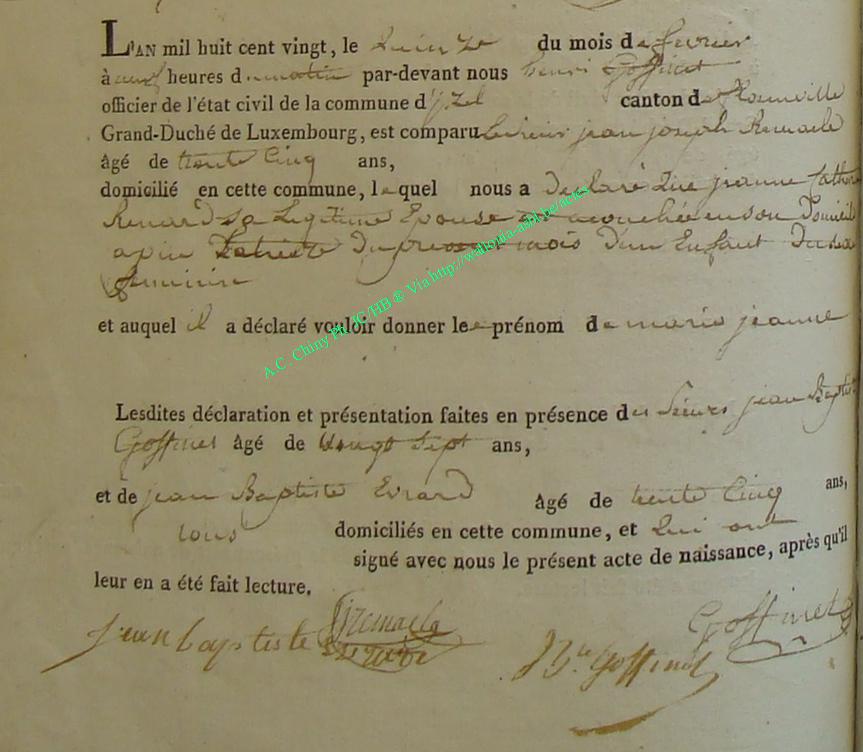 L'AN mil huit cent vingt, le quinze du mois de fevrier
à neuf heures du matin par-devant nous henri Goffinet
officier de l'état civil de la commune d'yzel canton de
Grand-Duché de Luxembourg, est comparu le sieur jean joseph Remacle
âgé de trente Cinq ans,
domicilié en cette commune, lequel nous a declaré que jeanne Catheri
Renard sa Legitime Epouse est acouchée en son Domicile
du mois d'un Enfant Du sex
feminin
et auquel il a déclaré vouloir donner le prénom de marie jeanne
Lesdites déclaration et présentation faites en présence des sieurs jean Baptist
Goffinet âgé de vingt sept ans,
et de jean Baptiste Evrard âgé de trente Cinq ans,
tous domiciliés en cette commune, et qui ont
signé avec nous le présent acte de naissance, après qu'il
leur en a été fait lecture.
jean baptiste jjremacle Goffinet
Bte Goffinet
A.C. Chiny Ph. JC/HB ® Via http://wallonia-asbl.be/actes